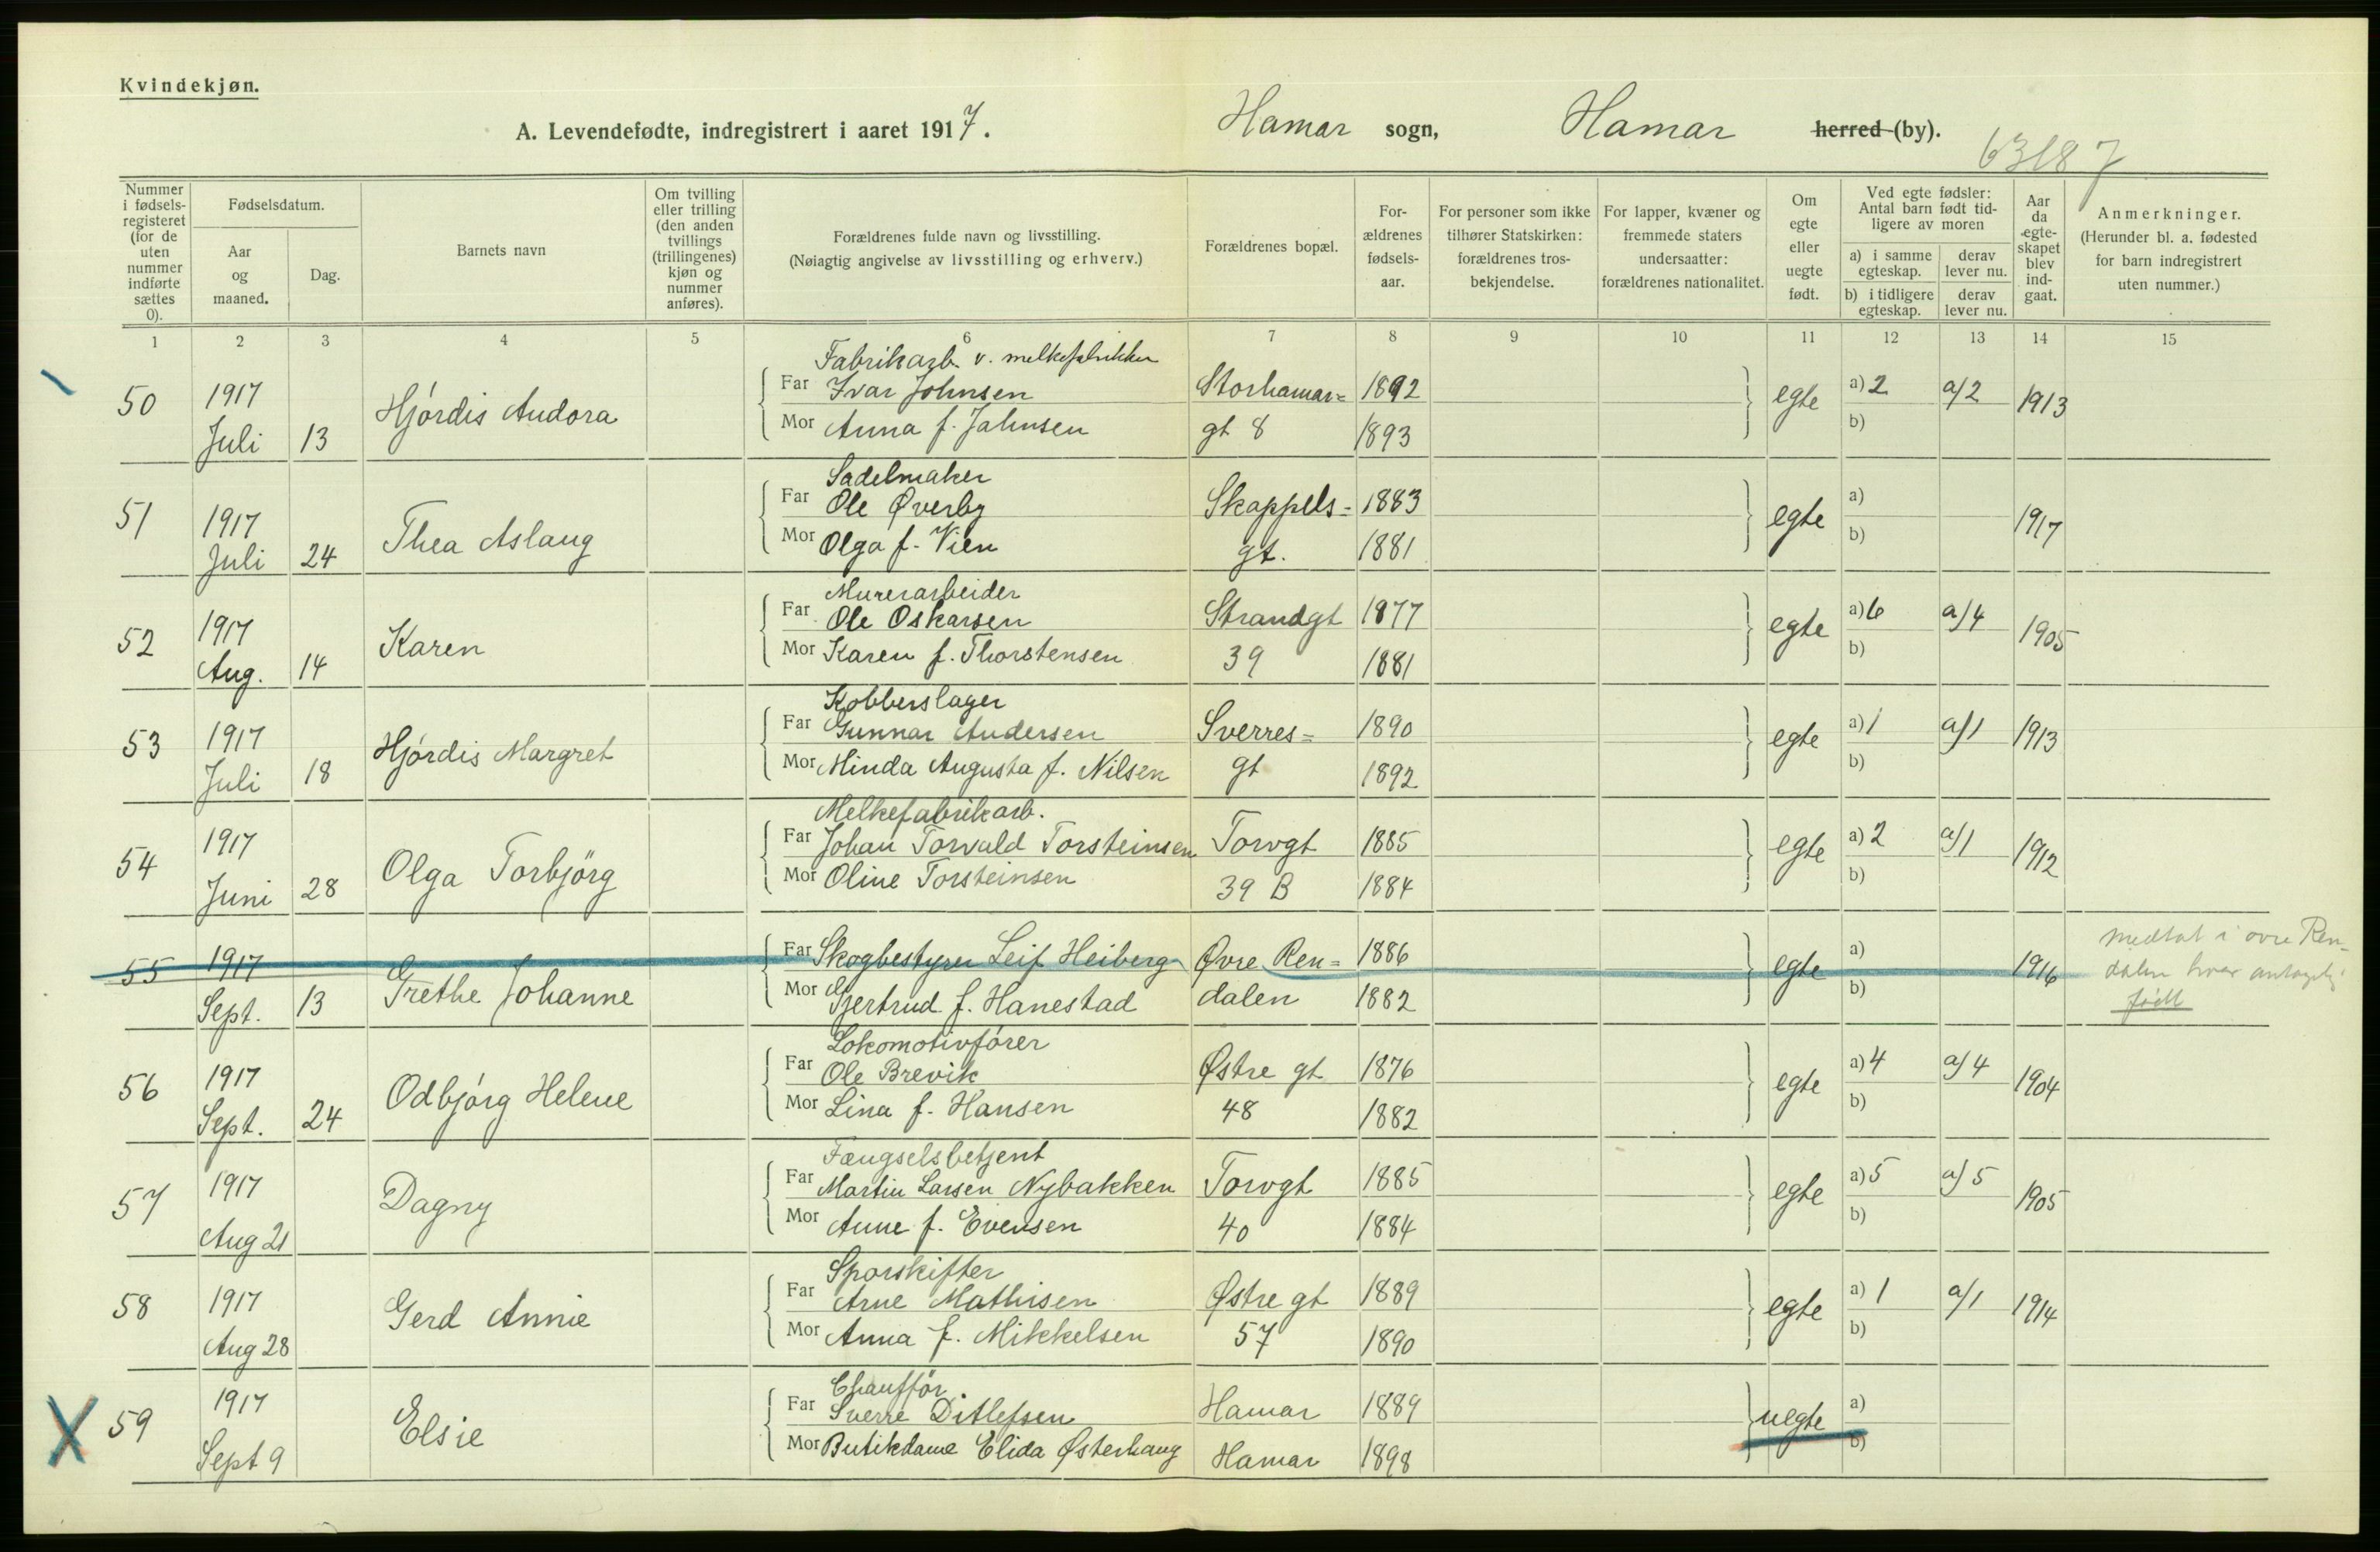 Kvindekjøn.
A. Levendefødte, indregistrert i aaret 1917. Hamar sogn, Hamar herred (by).
63187
Nummer i fødselsregisteret (for de uten nummer indførte sættes 0).
Fødselsdatum.
Aar og maaned.
Dag.
Barnets navn
Om tvilling eller trilling (den anden tvillings (trillingenes) kjøn og nummer anføres).
Forældrenes fulde navn og livsstilling.
(Nøiagtig angivelse av livsstilling og erhverv.)
Forældrenes bopæl.
Forældrenes fødselsaar.
For personer som ikke tilhører Statskirken: forældrenes trosbekjendelse.
For lapper, kvæner og fremmede staters undersaatter: forældrenes nationalitet.
Om egte eller uegte født.
Ved egte fødsler: Antal barn født tidligere av moren
a) i samme egteskap.
derav lever nu.
b) i tidligere egteskap.
derav lever nu.
Aar da egteskapet blev indgaat.
Anmerkninger.
(Herunder bl. a. fødested for barn indregistrert uten nummer.)
1 2 3 4 5 6 7 8 9 10 11 12 13 14 15
Fabrikarb. v. melkefabrikken
50 1917 Far Ivar Johnsen Storhamar= 1892 egte a) 2 a/2 1913
Juli 13 Hjórdis Audora Mor Anna f. Jahnsen gt 8 1893 b)
Sadelmaker
51 1917 Far Ole Øverby Skappels= 1883 egte a) 1917
Juli 24 Thea Aslaug Mor Olga f. Vien gt. 1881 b)
Murerarbeider
52 1917 Far Ole Oskarsen Strandgt 1877 egte a) 6 a/4 1905
Aug. 14 Karen Mor Karen f. Thorstensen 39 1881 b)
Kobberslager
53 1917 Far Gunnar Andersen Sverres= 1890 egte a) 1 a/1 1913
Juli 18 Hjórdis Margret Mor Minda Augusta f. Nilsen gt 1892 b)
Melkefabrikarb.
54 1917 Far Johan Torvald Torsteinsen Torvgt 1885 egte a) 2 a/1 1912
Juni 28 Olga Torbjörg Mor Oline Torsteinsen 39 B 1884 b)
55 1917 Far Skogbestyrer Leif Heiberg Øvre Ren= 1886 egte a) 1916 medtat i øvre Ren-
Sept. 13 Grethe Johanne Mor Gjertrud f. Hanestad dalen 1882 b) dalen hvor antagelig
født
Lokomotivfórer
56 1917 Far Ole Brevik Østre gt 1876 egte a) 4 a/4 1904
Sept. 24 Odbjórg Helene Mor Lina f. Hansen 48 1882 b)
Fængselsbetjent
57 1917 Far Martin Larsen Nybakken Torvgt 1885 egte a) 5 a/5 1905
Aug 21 Dagny Mor Anne f. Evensen 40 1884 b)
Sporskifter
58 1917 Far Arne Mathisen Østre gt 1889 egte a) 1 a/1 1914
Aug 28 Gerd Annie Mor Anna f. Mikkelsen 57 1890 b)
Chauffør
X 59 1917 Far Sverre Ditlefsen Hamar 1889 uegte a)
Sept 9 Elsie Mor Butikdame Elida Østerhaug Hamar 1898 b)